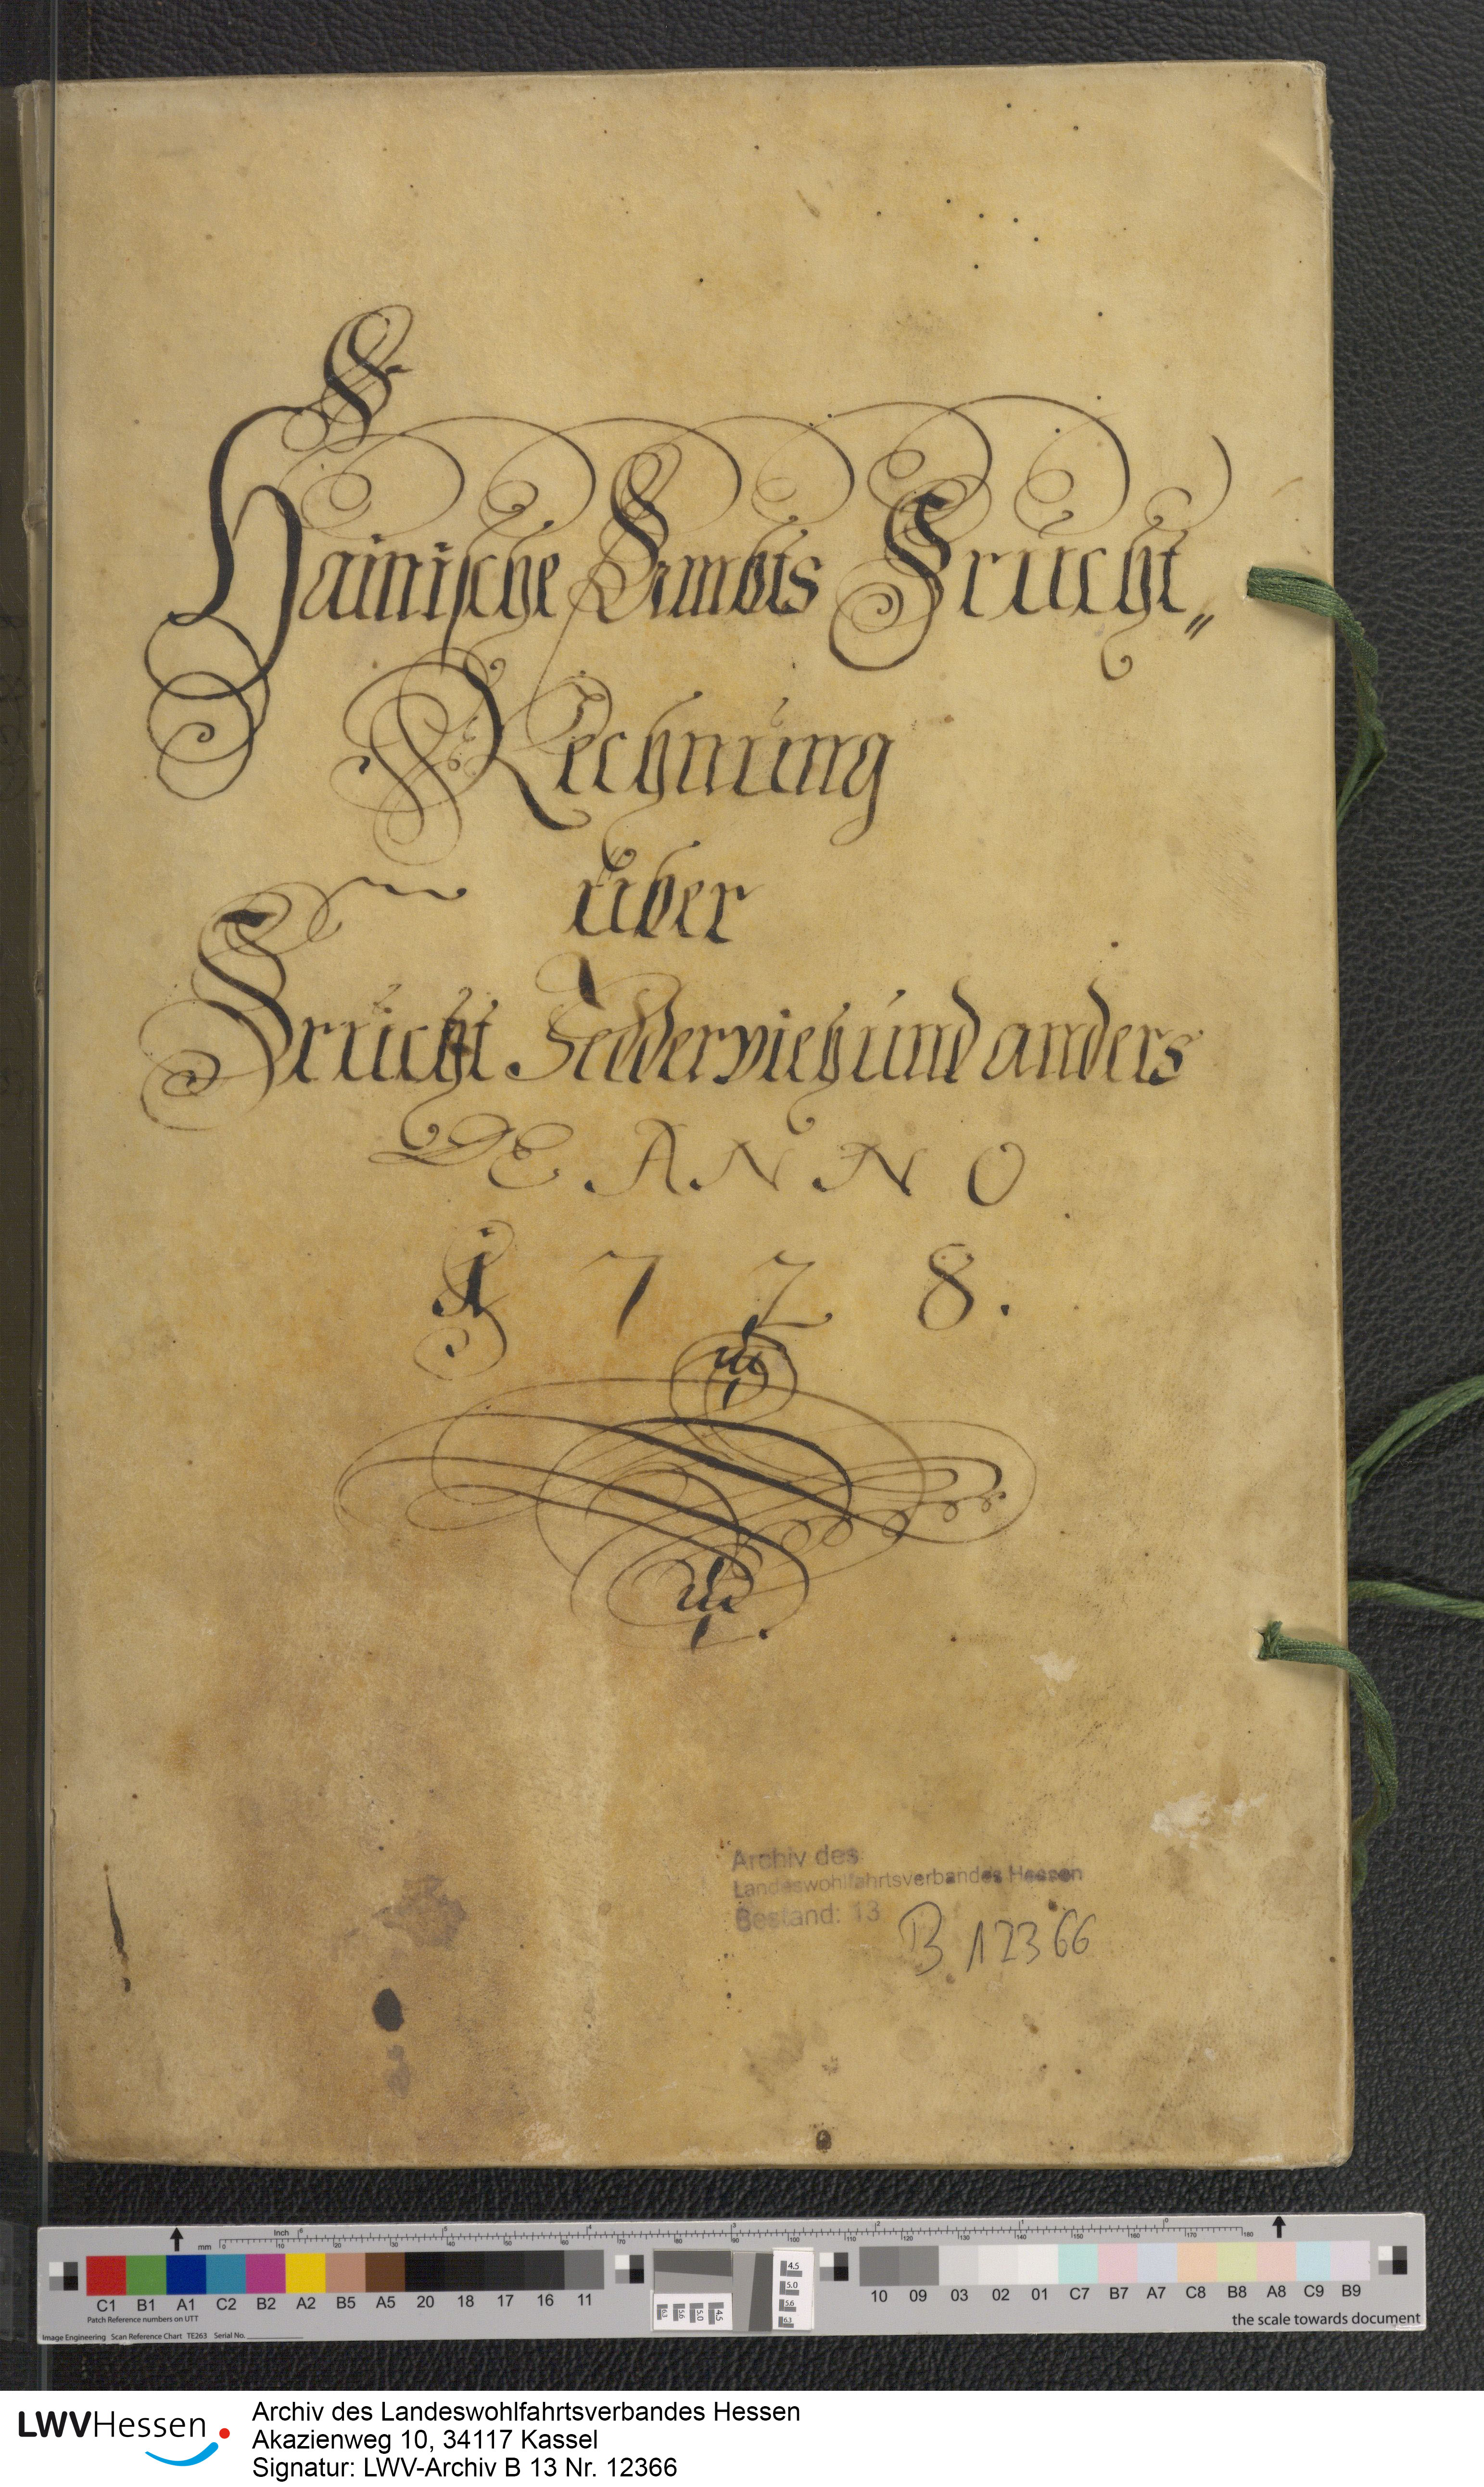 Hainische Ambts Frucht„
Rechnung
über
Frucht Feddervieh und anders
DE ANNO
1728.
Archiv des
Landeswohlfahrtsverbandes Hessen
Bestand: 13
B 12366
Inch
mm
C1 B1 A1 C2 B2 A2 B5 A5 20 18 17 16 11
10 09 03 02 01 C7 B7 A7 C8 B8 A8 C9 B9
4.5
5.0
5.6
6.3
6.3 5.6 5.0 4.5
Patch Reference numbers on UTT
the scale towards document
Image Engineering Scan Reference Chart TE263 Serial No.
LWVHessen
Archiv des Landeswohlfahrtsverbandes Hessen
Akazienweg 10, 34117 Kassel
Signatur: LWV-Archiv B 13 Nr. 12366